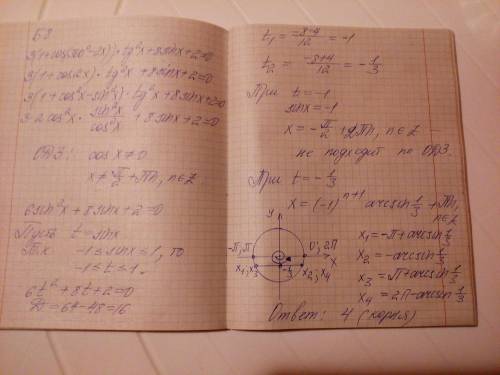 Б8
3(1+cos(360°-2x))·tg²x+8sinx+2=0
3(1+cos2x)·tg²x+8sinx+2=0
3(1+cos²x-sin²x)·tg²x+8sinx+2=0
3·2cos²x·sin²x/cos²x+8sinx+2=0
ОДЗ: cosx≠0
x≠π/2+πn, n∈Z
6sin²x+8sinx+2=0
Пусть t=sinx
Т.к. -1≤sinx≤1, то
-1≤t≤1.
6t²+8t+2=0
D=64-48=16
t₁=(-8-4)/12=-1
t₂=(-8+4)/12=-1/3
При t=-1
sinx=-1
x=-π/2+2πn, n∈Z –
не подходит по ОДЗ.
При t=-1/3
x=(-1)ⁿ⁺¹arcsin1/3+πn, n∈Z
y
-π, π
0; 2π
x
x₁, x₃
-1/3
x₂, x₄
x₁=-π+arcsin1/3
x₂=-arcsin1/3
x₃=π+arcsin1/3
x₄=2π-arcsin1/3
Ответ: 4 (корня)